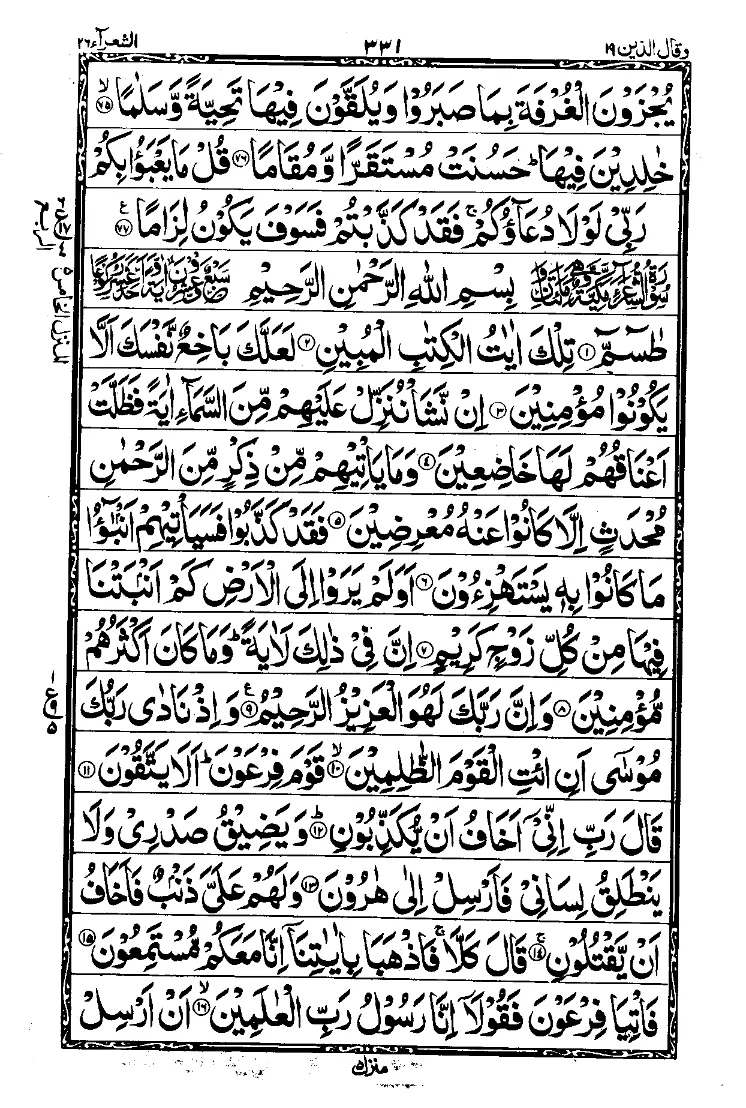 وقال الذين ١٩
٣٣١
الشعرآء ٢٦
يُجْزَوْنَ الْغُرْفَةَ بِمَا صَبَرُوْا وَيُلَقَّوْنَ فِيْهَا تَحِيَّةً وَّسَلٰمًا ۙ﴿٧٥﴾
خٰلِدِيْنَ فِيْهَا ؕ حَسُنَتْ مُسْتَقَرًّا وَّمُقَامًا ﴿٧٦﴾ قُلْ مَا يَعْبَؤُا بِكُمْ
رَبِّىْ لَوْلَا دُعَآؤُكُمْ ۚ فَقَدْ كَذَّبْتُمْ فَسَوْفَ يَكُوْنُ لِزَامًا ﴿٧٧﴾ ع
بِسْمِ اللهِ الرَّحْمٰنِ الرَّحِيْمِ
طٰسٓمّٓ ﴿١﴾ تِلْكَ اٰيٰتُ الْكِتٰبِ الْمُبِيْنِ ﴿٢﴾ لَعَلَّكَ بَاخِعٌ نَّفْسَكَ اَلَّا
يَكُوْنُوْا مُؤْمِنِيْنَ ﴿٣﴾ اِنْ نَّشَاْ نُنَزِّلْ عَلَيْهِمْ مِّنَ السَّمَآءِ اٰيَةً فَظَلَّتْ
اَعْنَاقُهُمْ لَهَا خَاضِعِيْنَ ﴿٤﴾ وَمَا يَاْتِيْهِمْ مِّنْ ذِكْرٍ مِّنَ الرَّحْمٰنِ
مُحْدَثٍ اِلَّا كَانُوْا عَنْهُ مُعْرِضِيْنَ ﴿٥﴾ فَقَدْ كَذَّبُوْا فَسَيَاْتِيْهِمْ اَنْۢبٰٓؤُا
مَا كَانُوْا بِهٖ يَسْتَهْزِءُوْنَ ﴿٦﴾ اَوَلَمْ يَرَوْا اِلَى الْاَرْضِ كَمْ اَنْۢبَتْنَا
فِيْهَا مِنْ كُلِّ زَوْجٍ كَرِيْمٍ ﴿٧﴾ اِنَّ فِىْ ذٰلِكَ لَاٰيَةً ؕ وَمَا كَانَ اَكْثَرُهُمْ
مُّؤْمِنِيْنَ ﴿٨﴾ وَاِنَّ رَبَّكَ لَهُوَ الْعَزِيْزُ الرَّحِيْمُ ﴿٩﴾ ع وَاِذْ نَادٰى رَبُّكَ
مُوْسٰٓى اَنِ ائْتِ الْقَوْمَ الظّٰلِمِيْنَ ۙ﴿١٠﴾ قَوْمَ فِرْعَوْنَ ؕ اَلَا يَتَّقُوْنَ ﴿١١﴾
قَالَ رَبِّ اِنِّىْٓ اَخَافُ اَنْ يُّكَذِّبُوْنِ ؕ﴿١٢﴾ وَيَضِيْقُ صَدْرِىْ وَلَا
يَنْطَلِقُ لِسَانِىْ فَاَرْسِلْ اِلٰى هٰرُوْنَ ﴿١٣﴾ وَلَهُمْ عَلَىَّ ذَنْۢبٌ فَاَخَافُ
اَنْ يَّقْتُلُوْنِ ۚ﴿١٤﴾ قَالَ كَلَّا ۚ فَاذْهَبَا بِاٰيٰتِنَآ اِنَّا مَعَكُمْ مُّسْتَمِعُوْنَ ﴿١٥﴾
فَاْتِيَا فِرْعَوْنَ فَقُوْلَآ اِنَّا رَسُوْلُ رَبِّ الْعٰلَمِيْنَ ۙ﴿١٦﴾ اَنْ اَرْسِلْ
منزل ٥